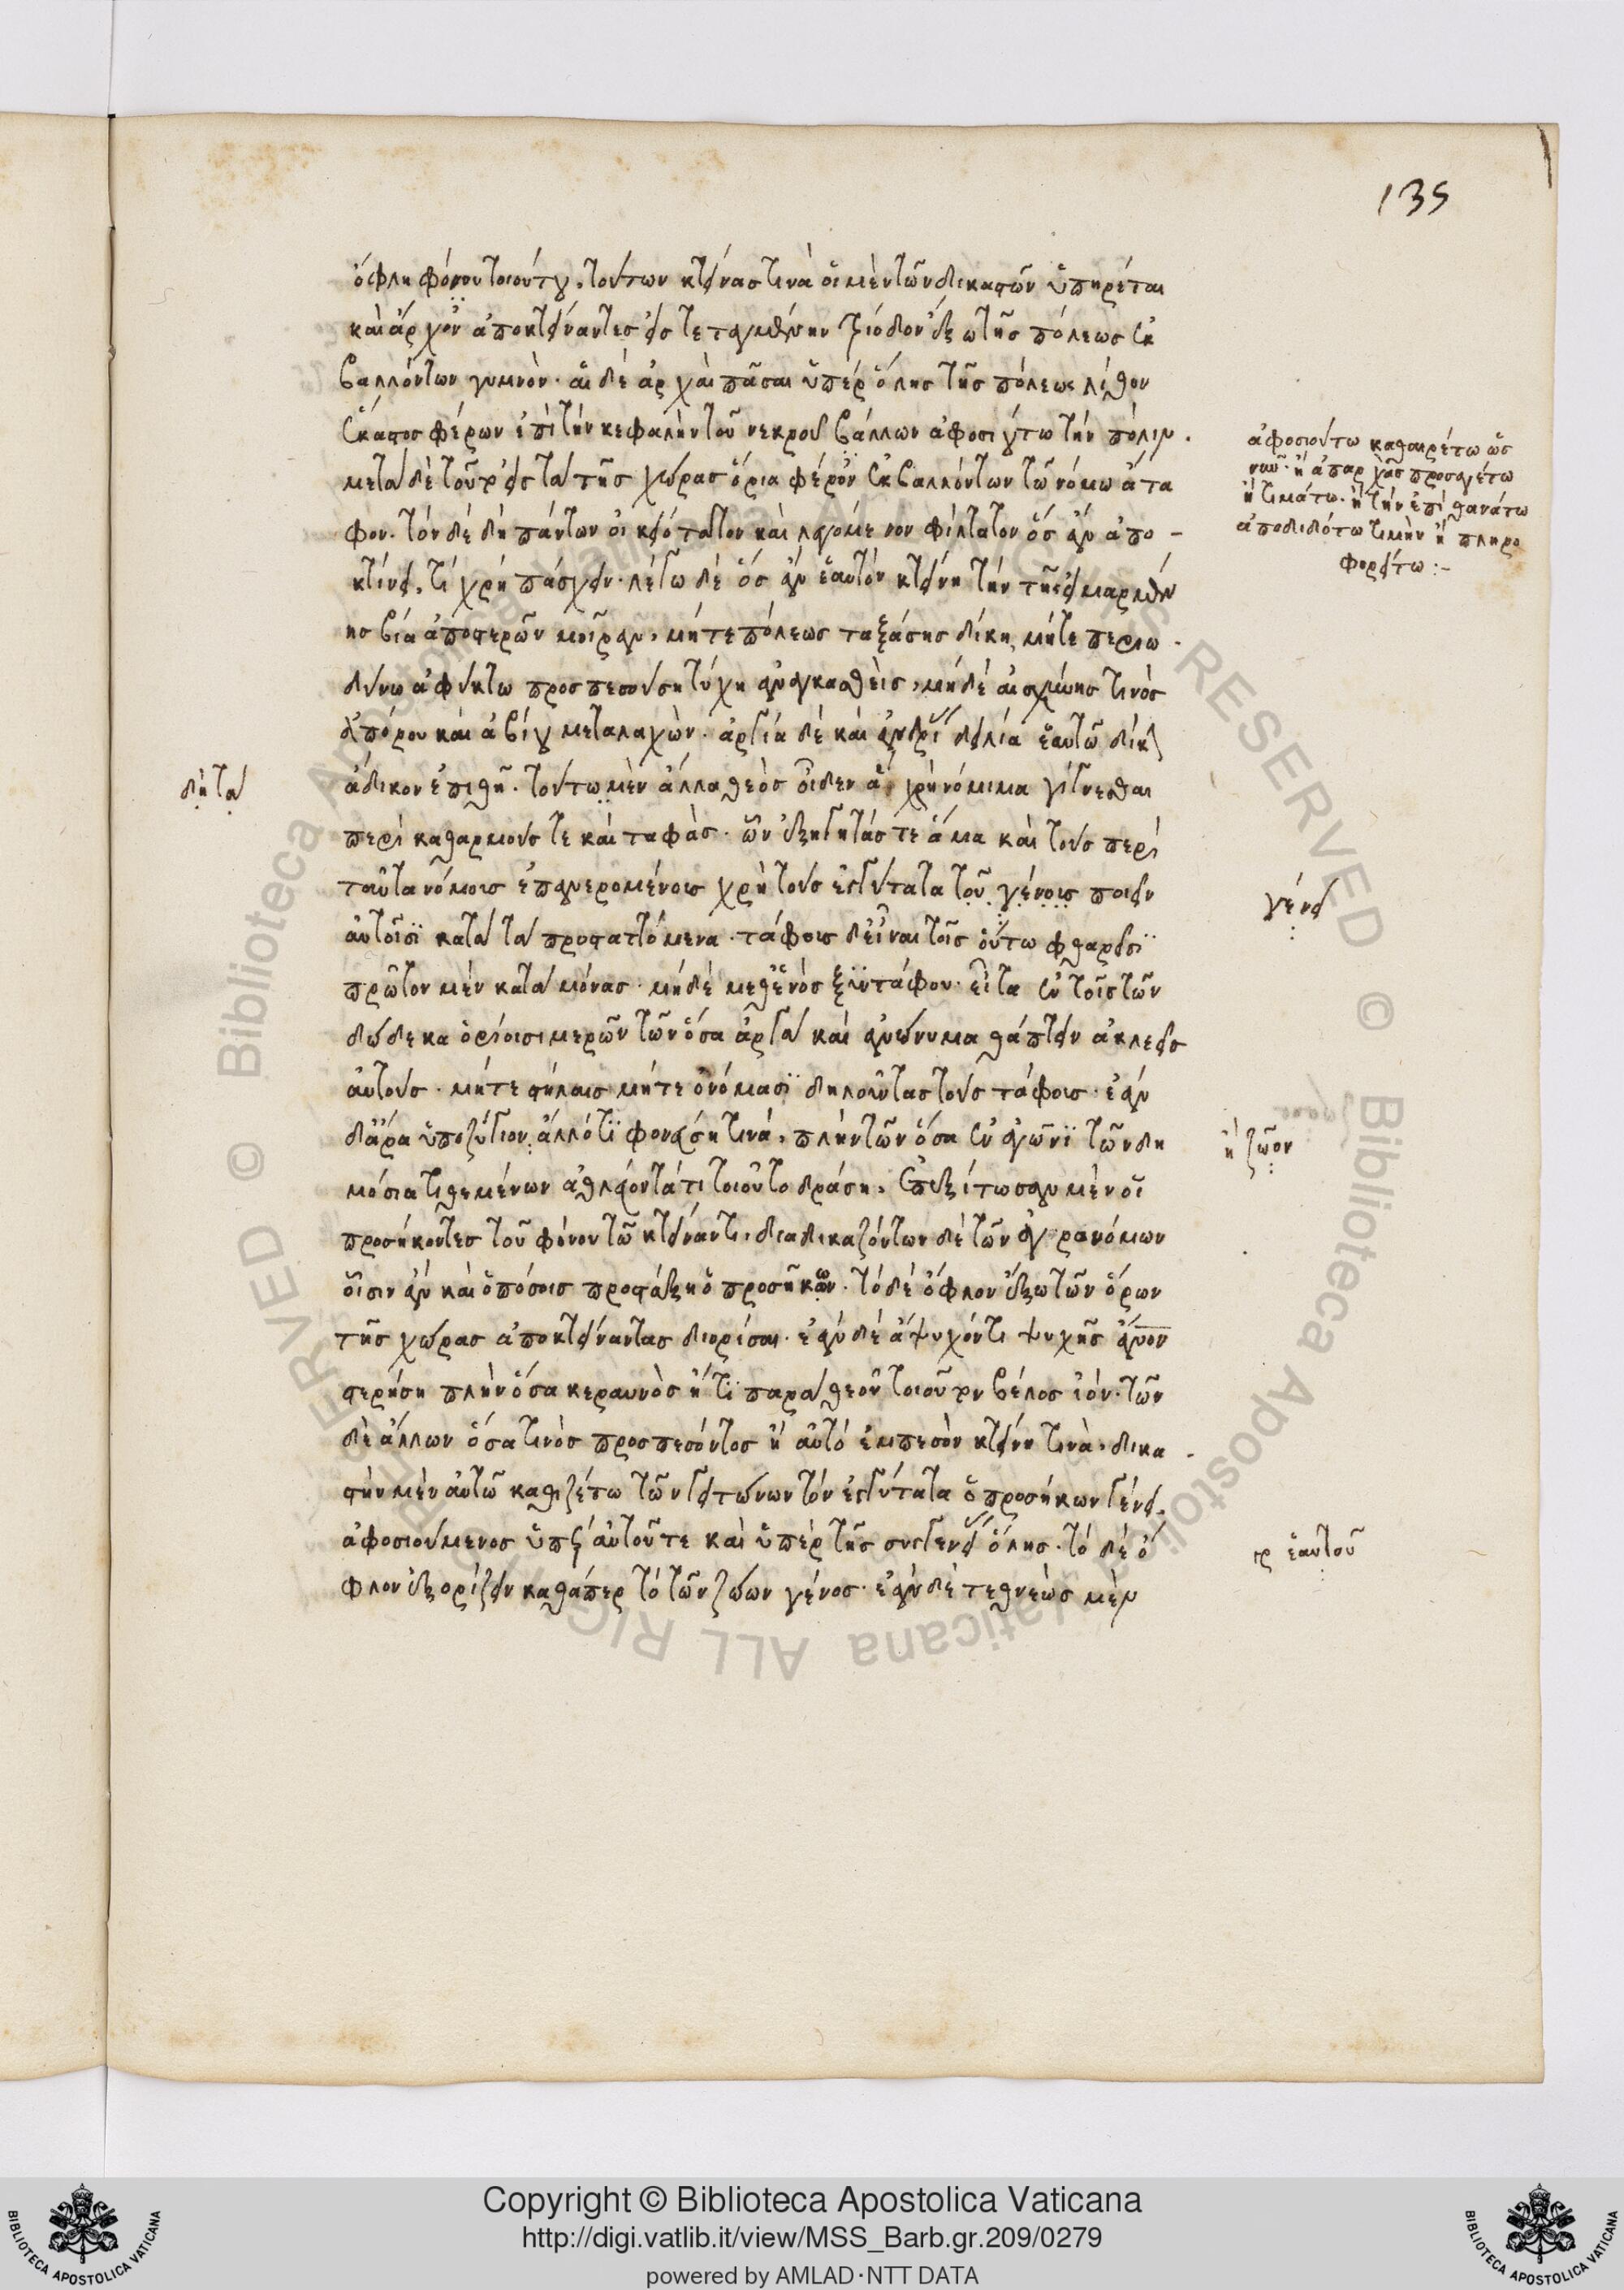 135
ὄφλη φόνου τοιούτου. τούτων κτείνας τινὰ οἱ μὲν τῶν δικαστῶν ὑπηρέται
καὶ ἄρχον ἀποκτείναντες εἰς τεταγμένην τρίοδον ἔξω τῆς πόλεως ἐκ
βαλλόντων γυμνὸν. αἱ δὲ ἀρχαὶ πᾶσαι ὑπὲρ ὅλης τῆς πόλεως λίθον
ἕκαστος φέρων ἐπὶ τὴν κεφαλὴν τοῦ νεκροῦ βάλλων ἀφοσιούτω τὴν πόλιν.
μετὰ δὲ τοῦτο εἰς τὰ τῆς χώρας ὅρια φέρον ἐκβαλλόντων τῶ νόμω ἄτα
φον. τὸν δὲ δὴ πάντων οἰκειότατον καὶ λεγόμενον φίλτατον ὅς ἂν ἀπο-
κτίνει, τί χρὴ πάσχειν. λέγω δὲ ὅς ἂν ἑαυτὸν κτείνη τὴν τῆς εἱμαρμέν
ης βία ἀποστερῶν μοῖραν, μήτε πόλεως ταξάσης δίκη, μήτε περιω-
δύνω ἀφύκτω προσπεσούσῃ τύχη ἀναγκασθεὶς, μηδὲ αἰσχύνης τινὸς
ἀπόρου καὶ ἀβίου μεταλαχὼν. ἀργία δὲ καὶ ἀνανδρίας δειλία ἑαυτῶ δίκην
ἄδικον ἐπιθῆ. τούτω μὲν ἄλλα θεὸς οἶδεν ἃ χρὴ νόμιμα γίγνεσθαι
περὶ καθαρμούς τε καὶ ταφὰς. ὧν ἐξηγητάς τε ἅμα καὶ τοὺς περὶ
ταῦτα νόμους ἐπανερομένους χρὴ τοὺς ἐγγύτατα τοῦ γένους ποιεῖν
αὐτοῖσϊ κατὰ τὰ προστατόμενα. τάφους δ' εἶναι τοῖς οὕτω φθαρεῖσϊ
πρῶτον μὲν κατὰ μόνας. μηδὲ μεθ' ἑνὸς ξυντάφου. εἶτα ἐν τοῖς τῶν
δώδεκα ὁρίοισι μερῶν τῶν ὅσα ἀργὰ καὶ ἀνώνυμα θάπτειν ἀκλεεῖς
αὐτούς. μήτε στήλαις μήτε ὀνόμασϊ δηλοῦντας τοὺς τάφους. ἐὰν
δ' ἄρα ὑποζύγιον ἄλλό τϊ φονεύση τινά, πλὴν τῶν ὅσα ἐν ἀγῶνϊ τῶν δη
μόσια τιθεμένων ἀθλεύοντά τι τοιοῦτο δράση, ἐπεξίτωσαν μὲν οἱ
προσήκοντες τοῦ φόνου τῶ κτείναντι, διαδικαζόντων δὲ τῶν ἀγρανόμων
οἷσιν ἂν καὶ ὁπόσοις προστάξη ὁ προσήκων. τὸ δὲ ὄφλον ἔξω τῶν ὅρων
τῆς χώρας ἀποκτείναντας διορίσαι. ἐὰν δὲ ἄψυχόν τι ψυχῆς ἄνον
στερήση πλὴν ὅσα κεραυνὸς ἤ τϊ παρὰ θεοῦ τοιοῦτον βέλος ἰόν. τῶν
δὲ ἄλλων ὅσα τινὸς προσπεσόντος ἢ αὐτὸ ἐμπεσὸν κτείνη τινά, δικα-
στὴν μὲν αὐτῶ καθιζέτω τῶν γειτώνων τὸν ἐγγύτατα ὁ προσήκων γένει,
ἀφοσιούμενος ὑπὲρ αὑτοῦ τε καὶ ὑπὲρ τῆς συγγενείας ὅλης. τὸ δὲ ὄ
φλον ἐξορίζειν καθάπερ τὸ τῶν ζώων γένος. ἐὰν δὲ τεθνεὼς μὲν
ἀφοσιούτω καθαιρέτω ὡς
νῦν. ἢ ἀπαρχὰς προσαγέτω
ἢ τιμάτω. ἢ τὴν ἐπὶ θανάτω
ἀποδιδότω τιμὴν ἢ πληρο
φορείτω :-
δὴ τὰ
γένει
ἢ ζῶον
ρ ἑαυτοῦ
Copyright © Biblioteca Apostolica Vaticana
http://digi.vatlib.it/view/MSS_Barb.gr.209/0279
powered by AMLAD·NTT DATA
BIBLIOTECA APOSTOLICA VATICANA
BIBLIOTECA APOSTOLICA VATICANA
© Biblioteca Apostolica Vaticana ALL RIGHTS RESERVED